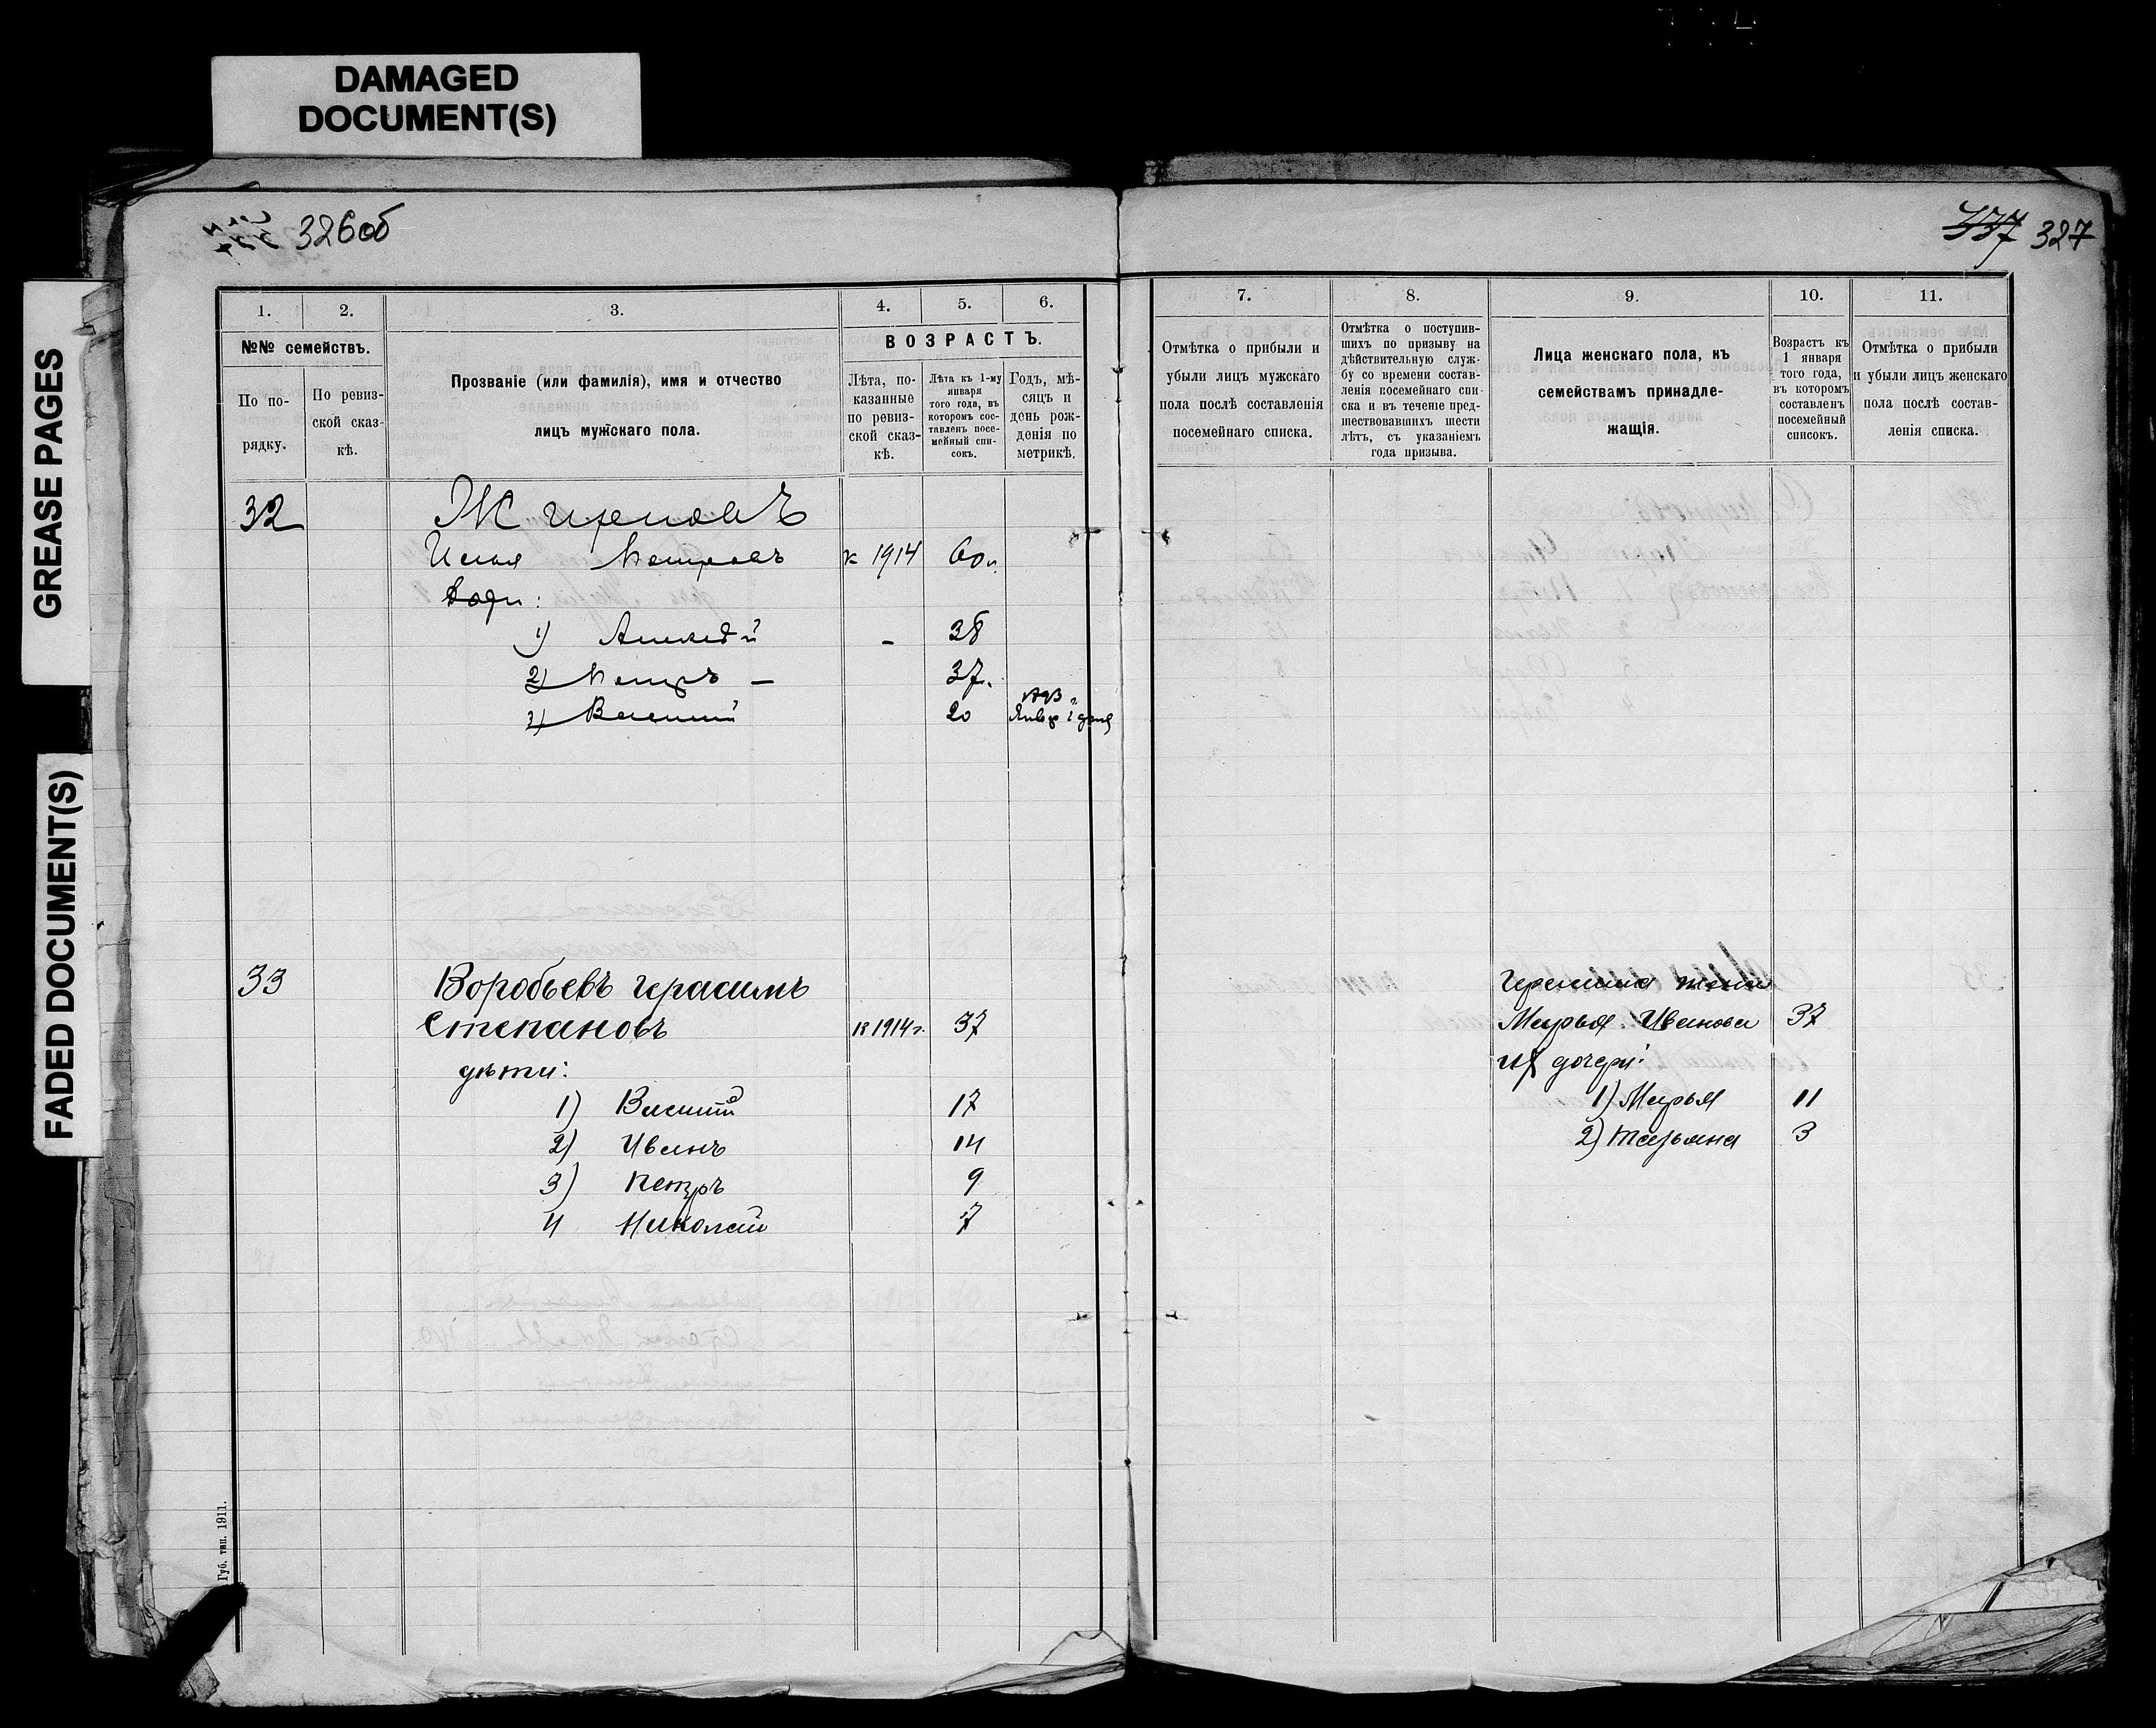 DAMAGED
DOCUMENT(S)
GREASE PAGES
FADED DOCUMENT(S)
326об
337 327
1.
2.
3.
4.
5.
6.
№№ семействъ.
По по-
рядку.
По ревиз-
ской сказ-
кѣ.
Прозваніе (или фамилія), имя и отчество
лицъ мужскаго пола.
ВОЗРАСТЪ.
Лѣта, по-
казанные
по ревиз-
ской сказ-
кѣ.
Лѣта къ 1-му
января
того года, въ
которомъ сос-
тавленъ посе-
мейный спи-
сокъ.
Годъ, мѣ-
сяцъ и
день рож-
денія по
метрикѣ.
7.
8.
9.
10.
11.
Отмѣтка о прибыли и
убыли лицъ мужскаго
пола послѣ составленія
посемейнаго списка.
Отмѣтка о поступив-
шихъ по призыву на
дѣйствительную служ-
бу со времени состав-
ленія посемейнаго спи-
ска и въ теченіе пред-
шествовавшихъ шести
лѣтъ, съ указаніемъ
года призыва.
Лица женскаго пола, къ
семействамъ принадле-
жащія.
Возрастъ къ
1 января
того года,
въ которомъ
составленъ
посемейный
списокъ.
Отмѣтка о прибыли
и убыли лицъ женскаго
пола послѣ состав-
ленія списка.
32
Петровъ к 1914 60
1) Алексѣй - 38
2) Петръ — 37.
3) Василий 20
33 Воробьевъ Герасимъ
Степановъ к 1914 г. 37
дѣти:
1) Василий 17
2) Иванъ 14
3) Петръ 9
4 Николай 7
Герасима жена
Марья Иванова 37
их дочери:
1) Марья 11
2) Татьяна 3
Губ. тип. 1911.